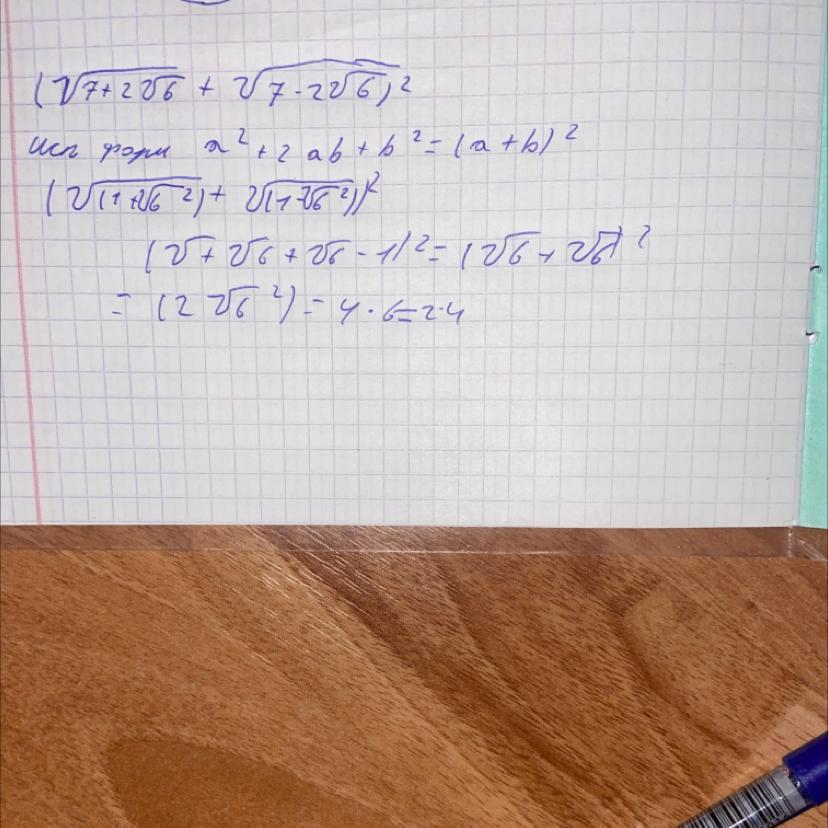 (√7+2√6 + √7-2√6)²
исп форм a²+2ab+b²=(a+b)²
(√(1+√6²)+ √(1-√6²))²
(√+√6+√6-1)²=(√6+√6)²
= (2√6²)=4·6=24